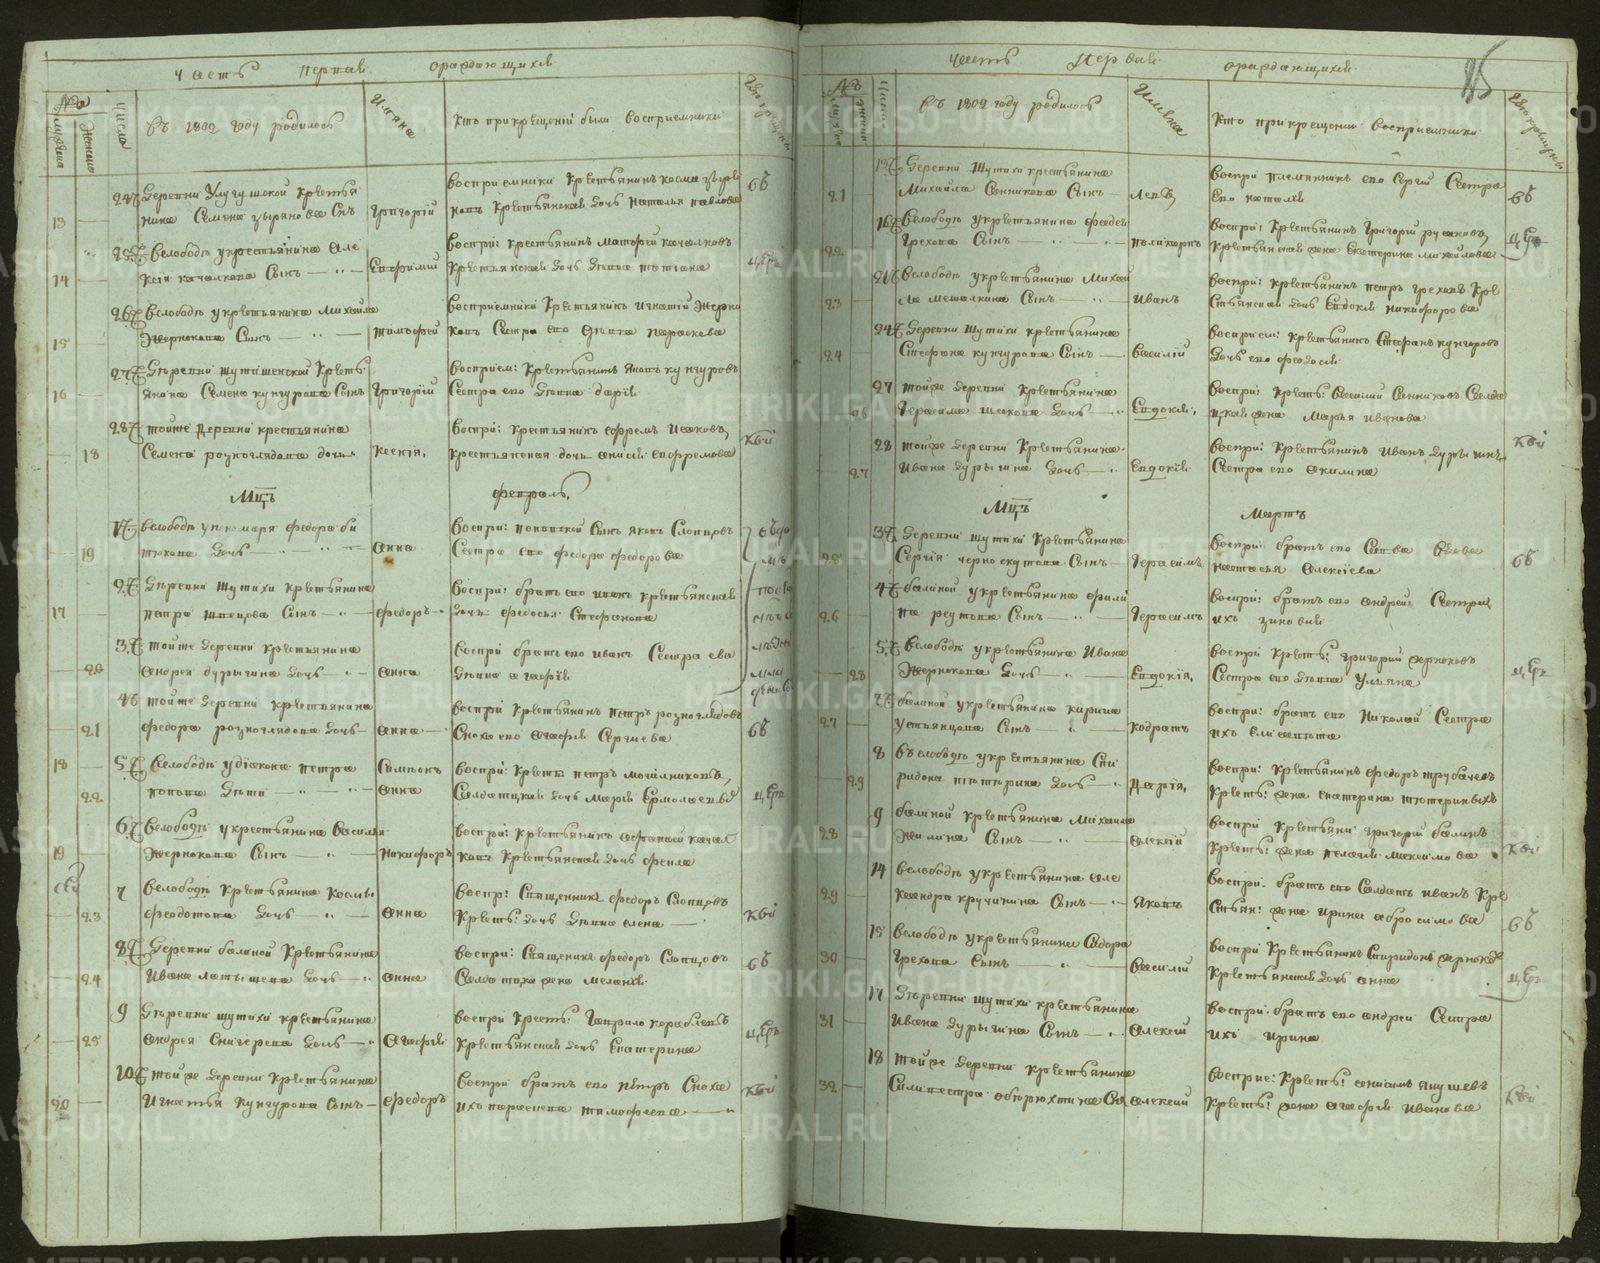 часть первая о раждающихся
№
мужеска
женска
числа
въ 1802 году родилось
имяна
кто при крещении были восприемники
24 деревни Улугушской крестья
13 нина Семена зырянова Снъ
Григорий
восприемники крестьянинъ косма зыря
новъ крестьянская дочь наталья павлова
25 в слободѣ у крестьянина Але
14 ксия качалкова Сынъ
Евфимий
восприі: крестьянинъ матфей качалковъ
крестьянская дочь девица татиана
26 в слободѣ у крестьянина михаила
15 жернокова Сынъ
тимофей
восприемники крестьянинъ игнатий жерно
ковъ Сестра его девица параскева
27 деревни шутишенской кресть
16 янина Семена кунгурова Сынъ
Григорий
восприем: крестьянинъ яковъ кунгуровъ
Сестра его девица дария
28 той же деревни крестьянина
18 Семена розноглядова дочь
ксения,
восприі: крестьянинъ ефремъ исаковъ,
крестьянская дочь анисия ефремова
Мцъ февраль,
1 в слободѣ у пономаря федора би
19 тюкова дочь
Анна
восприі: поповской Сынъ яковъ Слопцовъ
Сестра его федора федорова
2 деревни шутихи крестьянина
17 петра швецова Сынъ
федоръ
восприі: братъ его иванъ крестьянская
дочь федосья Стефанова
3 той же деревни крестьянина
20 андрея дурыгина дочь
Анна
восприі братъ его иванъ Сестра ева
девица агафия
4 той же деревни крестьянина
21 федора розноглядова дочь
Анна
восприі крестьянинъ петръ розноглядовъ
Сноха его агафия Сергиева
5 в слободѣ у диакона петра
18 22 попова дети
Симеонъ
Анна
восприі: крестья петръ мочильниковъ,
Салдатская дочь мария Ермолаевы
6 в слободѣ у крестьянина василия
19 жернокова Сынъ
Никифоръ
восприі крестьянинъ афанасий качал
ковъ крестьянская дочь фекла
7 в слободѣ крестьянина космы
23 федотова дочь
Анна
воспр: Священникъ федоръ Слопцовъ
крестья: дочь девица елена
8 деревни балиной крестьянина
24 ивана латышева дочь
Анна
восприі: Священикъ федоръ Слопцовъ
Салдатска жена мелания
9 деревни шутихи крестьянина
25 андрея Снигерева дочь
Агафия
восприі крестья: Гаврило кораблевъ
крестьянская дочь Екатерина
10 той же деревни крестьянина
20 игнатья кунгурова Сынъ
федоръ
восприі братъ его петръ Сноха
ихъ парасковья тимофеева
часть первая о раждающихся
85
числа
въ 1802 году родилось
имяна
кто при крещении восприемники
деревни шутихи крестьянина
21 михаила Санникова Сынъ
Левъ,
восприі племянникъ его Сергий Сестра
Его наталия
в слободѣ у крестьянина федота
22 Грехова Сынъ
поликарпъ
восприі: крестьянинъ Григорий русаковъ,
крестьянская жена екатерина михайлова
21 в слободѣ у крестьянина михаи
23 ла мешалкина Сынъ
Иванъ
восприі: крестьянинъ петръ греховъ кре
стьянская дочь Евдокия никифорова
24 деревни шутихи крестьянина
24 Стефана кунгурова Сынъ
василий
восприем: крестьянинъ Стефанъ кунгуровъ
дочь его федосия
27 той же деревни крестьянина
26 Герасима шахова дочь
Евдокия,
восприі: кресть: василий Санниковъ Салда
цкая жена Марья иванова
28 той же деревни крестьянина
27 Ивана дурыгина дочь
Евдокия
восприі: крестьянинъ Иванъ дурыгинъ
Сестра его акилина
Мцъ Мартъ
3 деревни шутихи крестьянина
25 Сергия черноскутова Сынъ
Герасимъ
восприі: братъ его Савва вдова
настасья алексиева
4 балиной у крестьянина фили
26 па реутова Сынъ
Герасимъ
восприі: братъ его андрей Сестра
ихъ зиновия
5 в слободѣ у крестьянина Ивана
28 жернокова дочь
Евдокия,
восприі кресть: григорий жерноковъ
Сестра его девица Ульяна
7 балиной у крестьянина кирила
27 устьянцова Сынъ
кодратъ
восприі: братъ его Николай Сестра
ихъ Елисавета
8 въ слободѣ у крестьянина Спи
29 ридона тютюрина дочь
Дария,
восприі: крестьянинъ федоръ трубачевъ
кресть: жена екатерина тютюриныхъ
9 балиной крестьянина михаила
28 жилина Сынъ
Алексий
восприі крестьяни григорий балинъ
кресть: жена пелагия максимова
14 в слободѣ у крестьянина але
29 ксандра кручинина Сынъ
Яковъ
восприі: братъ его Салдатъ иванъ кре
стьян: жена ирина абросимова
15 в слободѣ у крестьянина Сидора
30 Грехова Сынъ
василий
восприі крестьянинъ Спиридонъ жерноков
крестьянская дочь анна
17 деревни шутихи крестьянина
31 ивана дурыгина Сынъ
Алексий
восприі: братъ его андрей Сестра
ихъ ирина
18 той же деревни крестьянина
32 Силивестра обрюхтина Сы
Алексий
восприе: кресть: анисимъ якушевъ
кресть: жена агафия иванова
METRIKI.GASO-URAL.RU